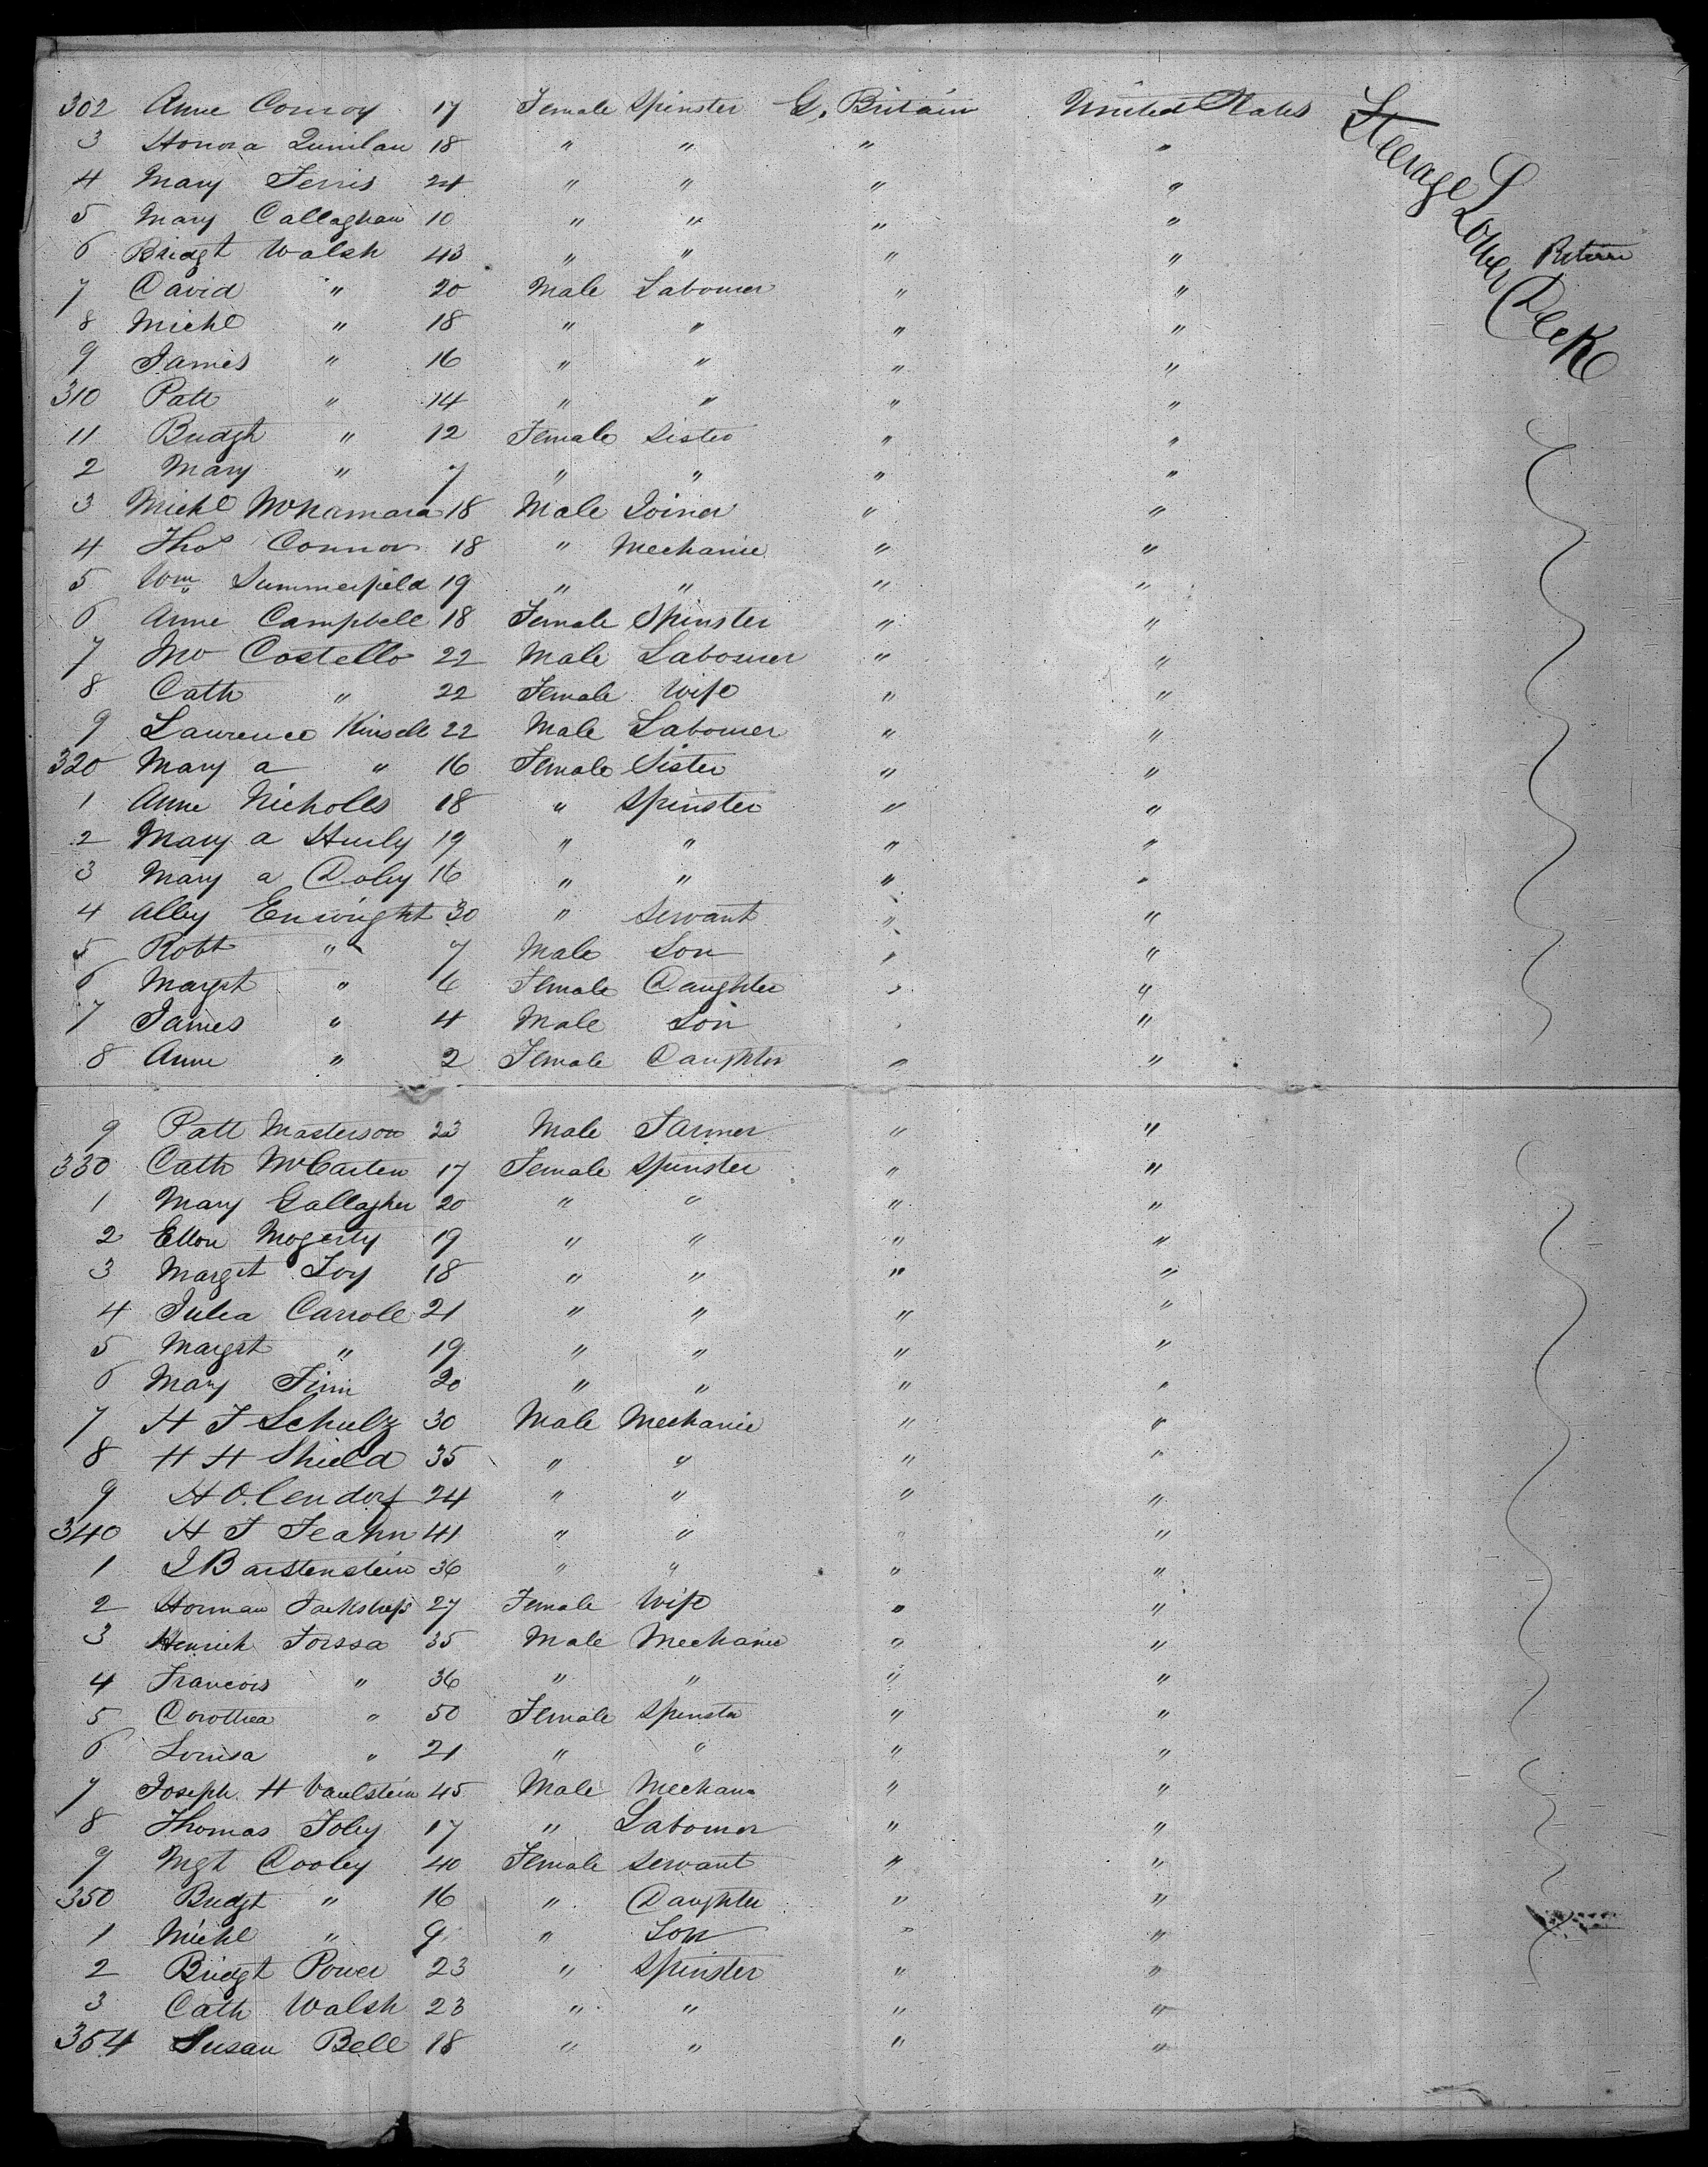 302 Anne Conroy 17 Female Spinster G. Britain United States
Steerage Lower Deck
3 Honora Quinlan 18 " " " "
4 Mary Ferris 24 " " " "
5 Mary Callaghan 10 " " " "
6 Bridgt Walsh 43 " " " "
7 David " 20 Male Labourer " "
8 Michl " 18 " " " "
9 James " 16 " " " "
310 Patt " 14 " " " "
11 Bridgt " 12 Female Sister " "
2 Mary " 7 " " " "
3 Michl McNamara 18 Male Joiner " "
4 Thos Connor 18 " Mechanic " "
5 Wm Summerfield 19 " " " "
6 Anne Campbell 18 Female Spinster " "
7 Jno Costello 22 Male Labourer " "
8 Cath " 22 Female Wife " "
9 Laurence Kinsell 22 Male Labourer " "
320 Mary a " 16 Female Sister " "
1 Anne Nicholls 18 " Spinster " "
2 Mary a Hurly 19 " " " "
3 Mary a Doley 16 " " " "
4 Alley Enwright 30 " Servant " "
5 Robt " 7 Male Son " "
6 Margrt " 6 Female Daughter " "
7 James " 4 Male Son " "
8 Anne " 2 Female Daughter " "
9 Patt Masterson 23 Male Farmer " "
330 Cath McCarten 17 Female Spinster " "
1 Mary Gallagher 20 " " " "
2 Ellen Mogerty 19 " " " "
3 Margrt Joy 18 " " " "
4 Julia Carroll 21 " " " "
5 Margrt " 19 " " " "
6 Mary Finn 20 " " " "
7 H F Schulz 30 Male Mechanic " "
8 H H Shield 35 " " " "
9 H Olendorf 24 " " " "
340 H F Feahn 41 " " " "
1 J Barstenstein 36 " " " "
2 Herman 27 Female Wife " "
3 Henrich Forssa 35 Male Mechanic " "
4 Francois " 36 " " " "
5 Dorothea " 50 Female Spinster " "
6 Louisa " 21 " " " "
7 Joseph H Vaulstein 45 Male Mechanic " "
8 Thomas Foley 17 " Labourer " "
9 Mgt Dooley 40 Female Servant " "
350 Bridgt " 16 " Daughter " "
1 Michl " 9 " Son " "
2 Bridgt Power 23 " Spinster " "
3 Cath Walsh 23 " " " "
354 Susan Bell 18 " " " "